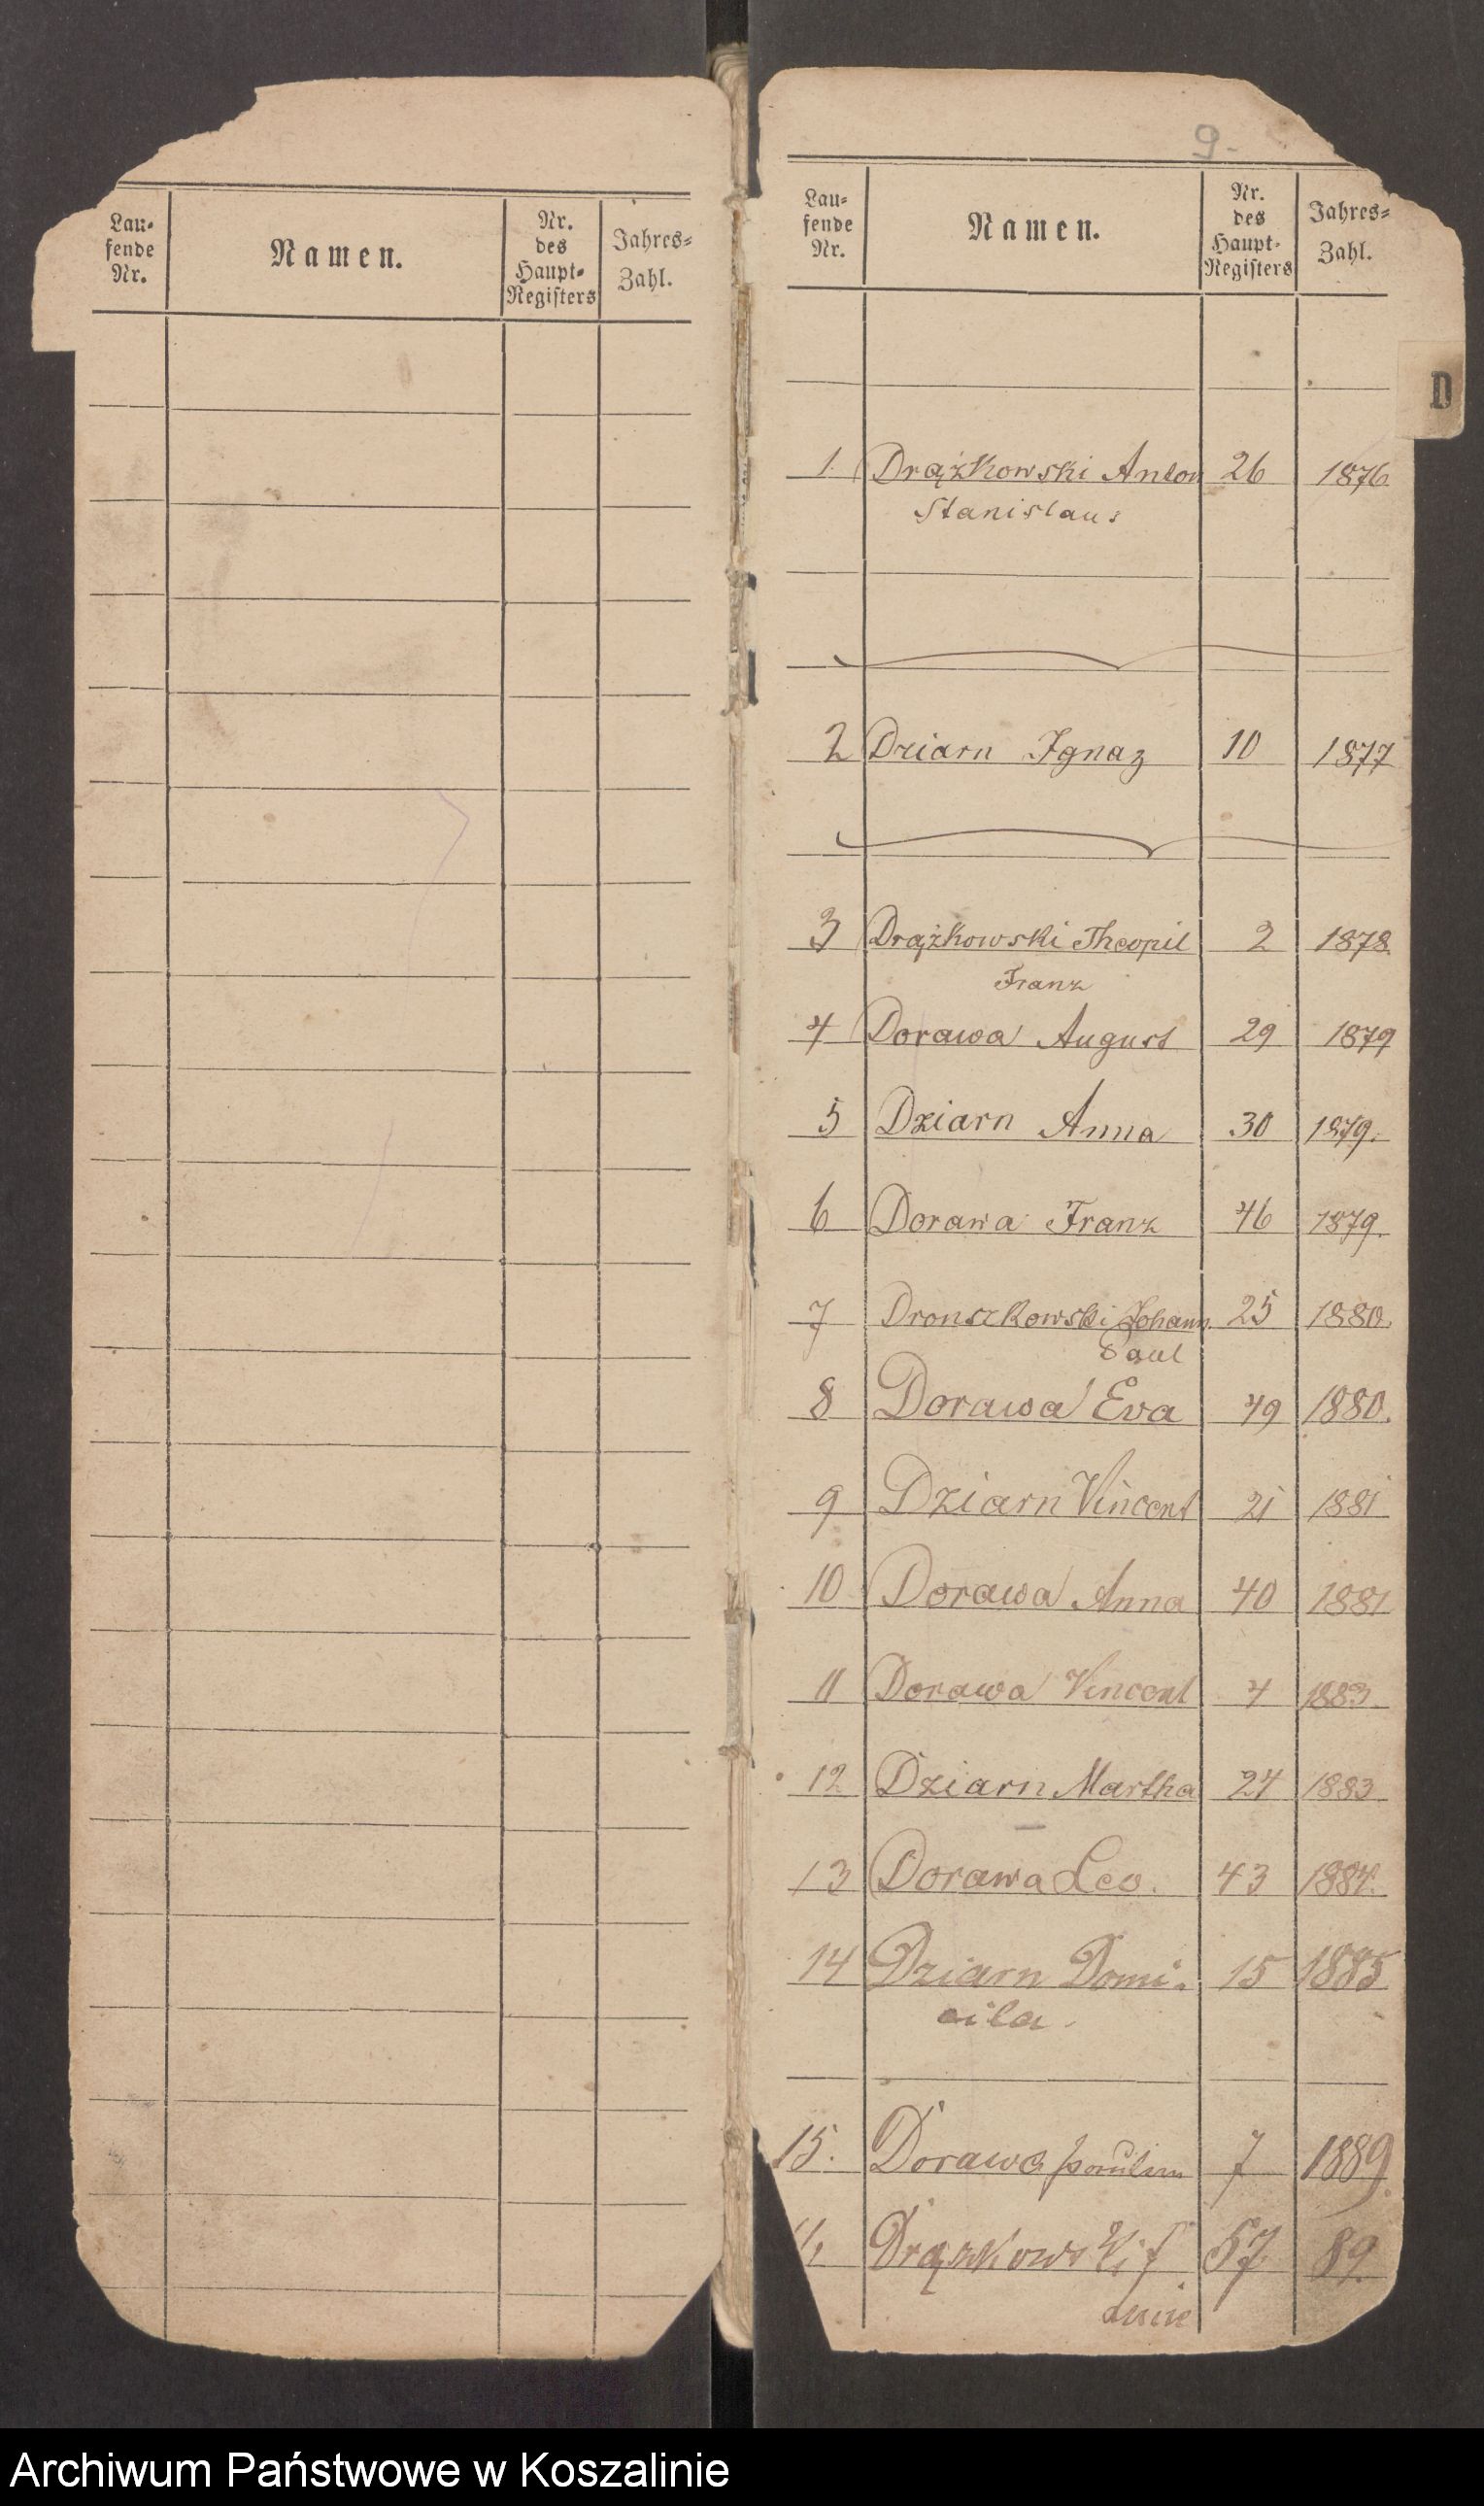 Lau-
fende
Nr.
Namen.
Nr.
des
Haupt-
Registers
Jahres-
Zahl.
9.
Lau-
fende
Nr.
Namen.
Nr.
des
Haupt-
Registers
Jahres-
Zahl.
D
1. Drążkowski Anton 26 1876
Stanislaus
2 Dziarn Ignaz 10 1877
3 Drążkowski Theopil 2 1878
Franz
4 Dorawa August 29 1879
5 Dziarn Anna 30 1879.
6 Dorawa Franz 46 1879.
7 Dronszkowski Johann 25 1880.
Paul
8 Dorawa Eva 49 1880.
9 Dziarn Vincent 21 1881
10 Dorawa Anna 40 1881
11 Dorawa Vincent 4 1883.
12 Dziarn Martha 24 1883
13 Dorawa Leo. 43 1884.
14 Dziarn Domi- 15 1885
cila.
15. Dorawa 7 1889.
Drązkowski 57 89.
Archiwum Państwowe w Koszalinie